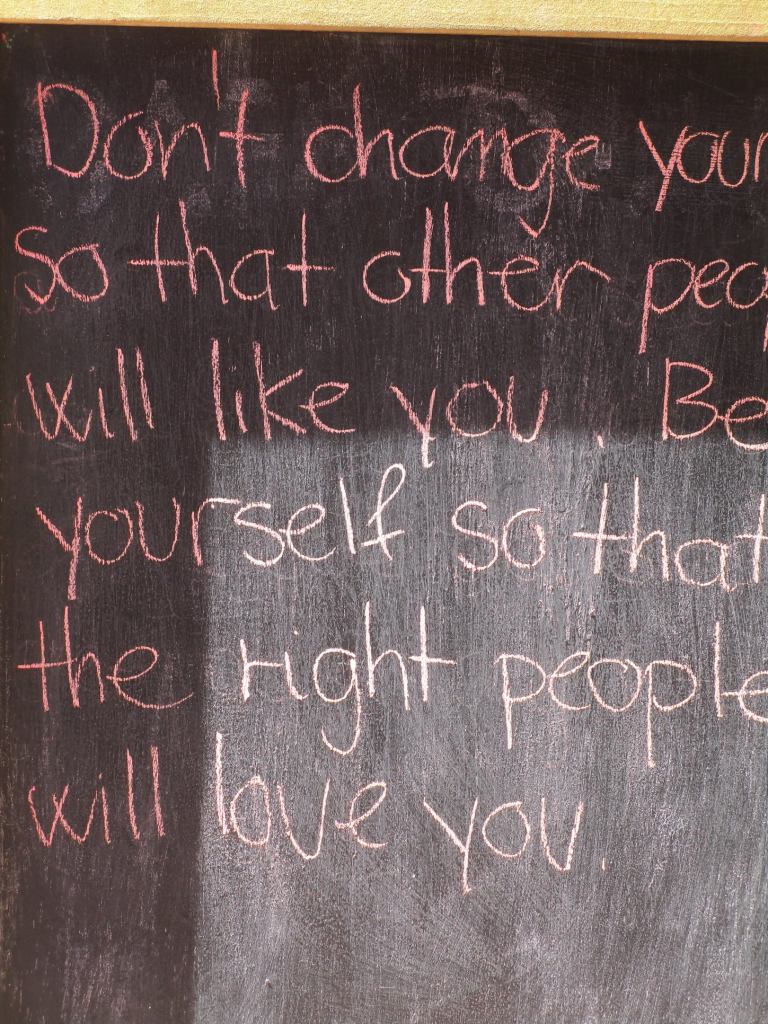 Don't change your
so that other peo
will like you. Be
yourself so that
the right people
will love you.